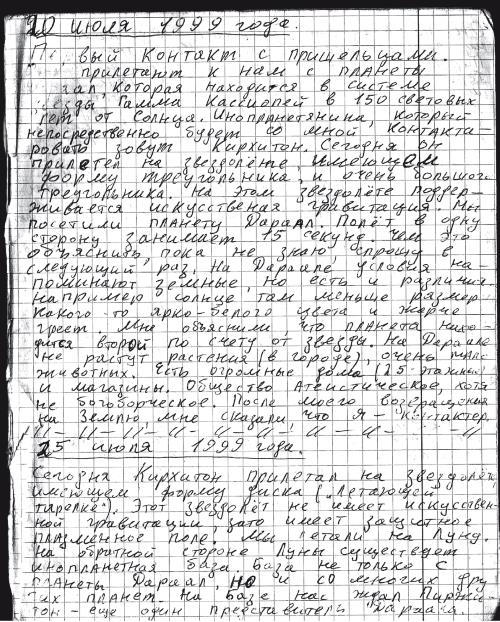 20 июля 1999 года.
вый контакт с пришельцами.
прилетают к нам с планеты
которая находится в системе
Гамма Кассиопей в 150 световых
лет от Солнца. Инопланетянина, который
непосредственно будет со мной контакти-
ровать зовут Кирхитон. Сегодня он
прилетел на звездолёте имеющем
форму треугольника, и очень большого
треугольника. На этом звездолёте поддер-
живается искусственая гравитация. Мы
посетили планету Дараал. Полёт в одну
сторону занимает 15 секунд. Чем это
объяснить, пока не знаю, спрошу в
следующий раз. На Дараале условия на-
поминают земные, но есть и различия
например солнце там меньше размер
какого-то ярко-белого цвета и жарче
греет. Мне объяснили, что планета нахо-
дится второй по счету от звезды. На Дараале
не растут растения (в городе), очень мало
животных. Есть огромные дома (25-этажные
и магазины. Общество Атеистическое, хотя
не богоборческое. После моего возвращения
на Землю мне сказали, что я - контактёр.
-//-//-//-//-//-//-//-//-//-//
25 июля 1999 года.
Сегодня Кирхитон прилетал на звездолёт,
имеющем форму диска („Летающей
тарелке"). Этот звездолёт не имеет искусствен-
ной гравитации зато имеет защитное
плазменное поле. Мы летали на Луну.
На обратной стороне Луны существует
инопланетная база. База не только с
планеты Дараал, но и со многих дру
гих планет. На базе нас ждал Пиржи-
тон - еще один представитель Дараала.